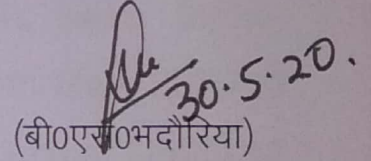 30.5.20.
(बी0एस0भदौरिया)